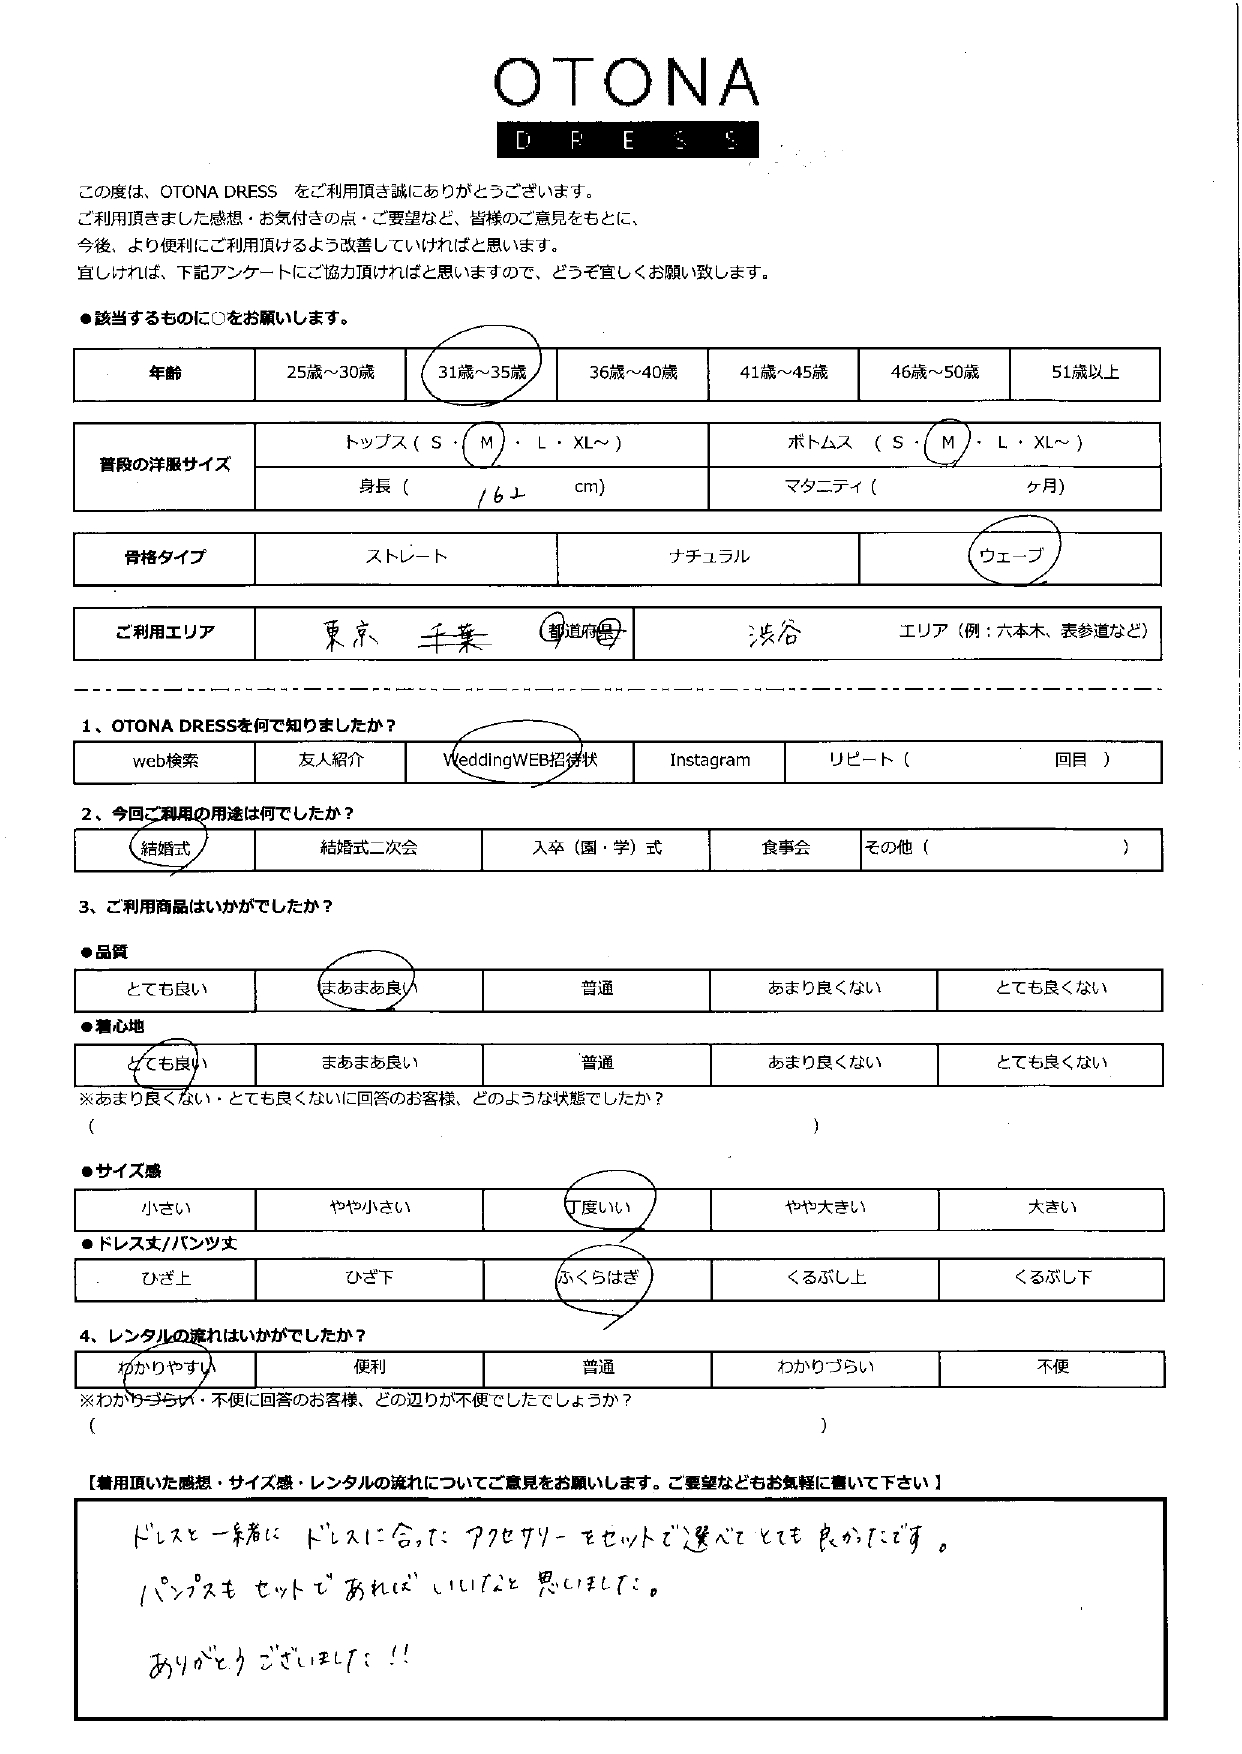 OTONA
DRESS
この度は、OTONA DRESS　をご利用頂き誠にありがとうございます。
ご利用頂きました感想・お気付きの点・ご要望など、皆様のご意見をもとに、
今後、より便利にご利用頂けるよう改善していければと思います。
宜しければ、下記アンケートにご協力頂ければと思いますので、どうぞ宜しくお願い致します。
●該当するものに○をお願いします。
年齢 25歳～30歳 31歳～35歳 36歳～40歳 41歳～45歳 46歳～50歳 51歳以上
普段の洋服サイズ トップス ( S ・ M ・ L ・ XL～ ) ボトムス ( S ・ M ・ L ・ XL～ )
身長 ( 162 cm) マタニティ ( ヶ月)
骨格タイプ ストレート ナチュラル ウェーブ
ご利用エリア 東京 千葉 都道府県 渋谷 エリア（例：六本木、表参道など）
1、OTONA DRESSを何で知りましたか？
web検索 友人紹介 WeddingWEB招待状 Instagram リピート（ 回目 ）
2、今回ご利用の用途は何でしたか？
結婚式 結婚式二次会 入卒（園・学）式 食事会 その他（ ）
3、ご利用商品はいかがでしたか？
●品質
とても良い まあまあ良い 普通 あまり良くない とても良くない
●着心地
とても良い まあまあ良い 普通 あまり良くない とても良くない
※あまり良くない・とても良くないに回答のお客様、どのような状態でしたか？
( )
●サイズ感
小さい やや小さい 丁度いい やや大きい 大きい
●ドレス丈/パンツ丈
ひざ上 ひざ下 ふくらはぎ くるぶし上 くるぶし下
4、レンタルの流れはいかがでしたか？
わかりやすい 便利 普通 わかりづらい 不便
※わかりづらい・不便に回答のお客様、どの辺りが不便でしたでしょうか？
( )
【着用頂いた感想・サイズ感・レンタルの流れについてご意見をお願いします。ご要望などもお気軽に書いて下さい】
ドレスと一緒に ドレスに合った アクセサリーをセットで選べてとても良かったです。
パンプスも セットであれば いいなと 思いました。
ありがとうございました!!